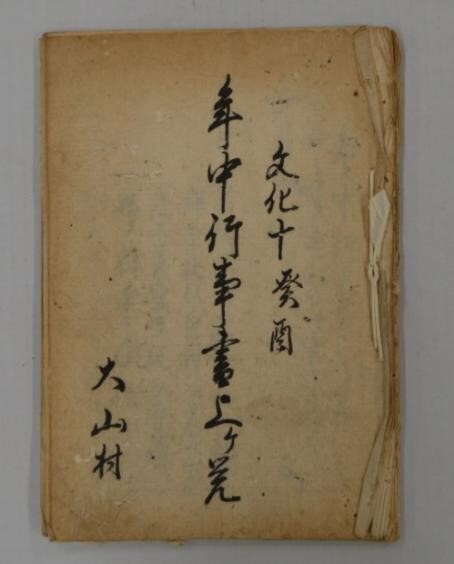 文化十癸酉
年中行事書上ケ覚
大山村